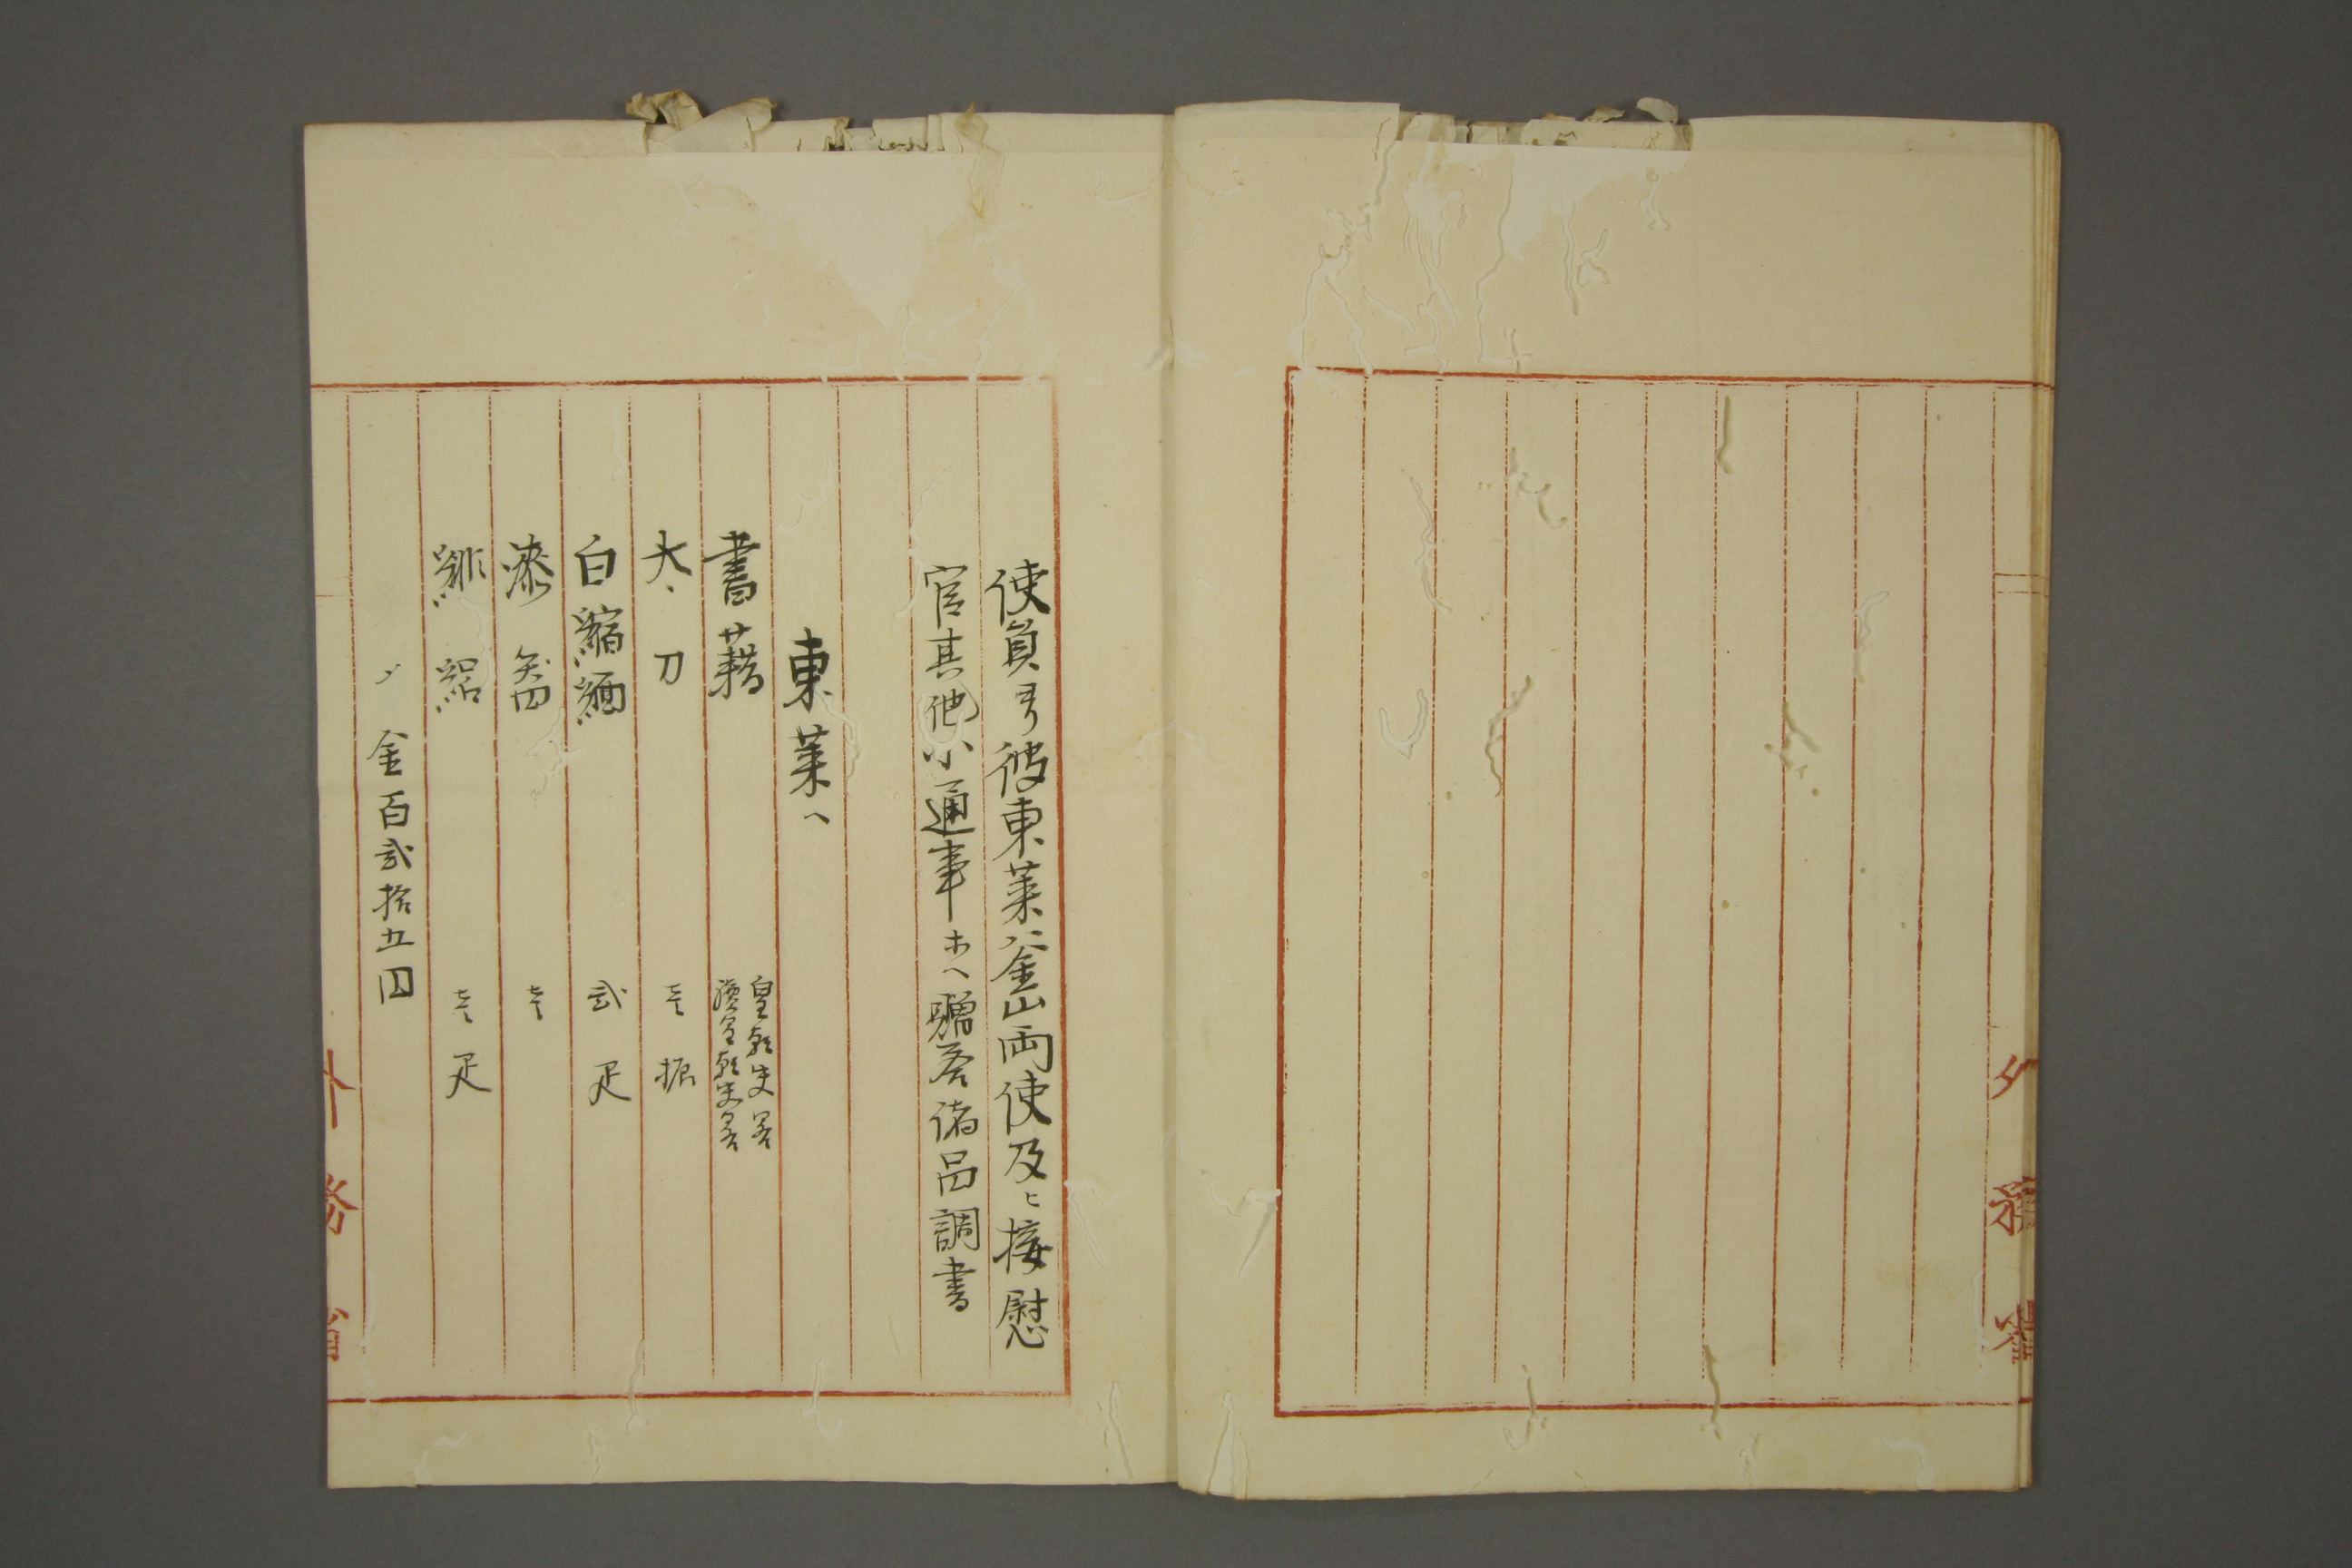 外務省
使員ヨリ彼東莱釜山両使及ヒ接慰
官其他小通事ホヘ贈答諸品調書
東莱ヘ
書藉
皇朝史畧
續皇朝史畧
大刀 壱振
白縮緬 弐疋
漆 壱
緋 壱疋
〆 金百弐拾五円
外務省